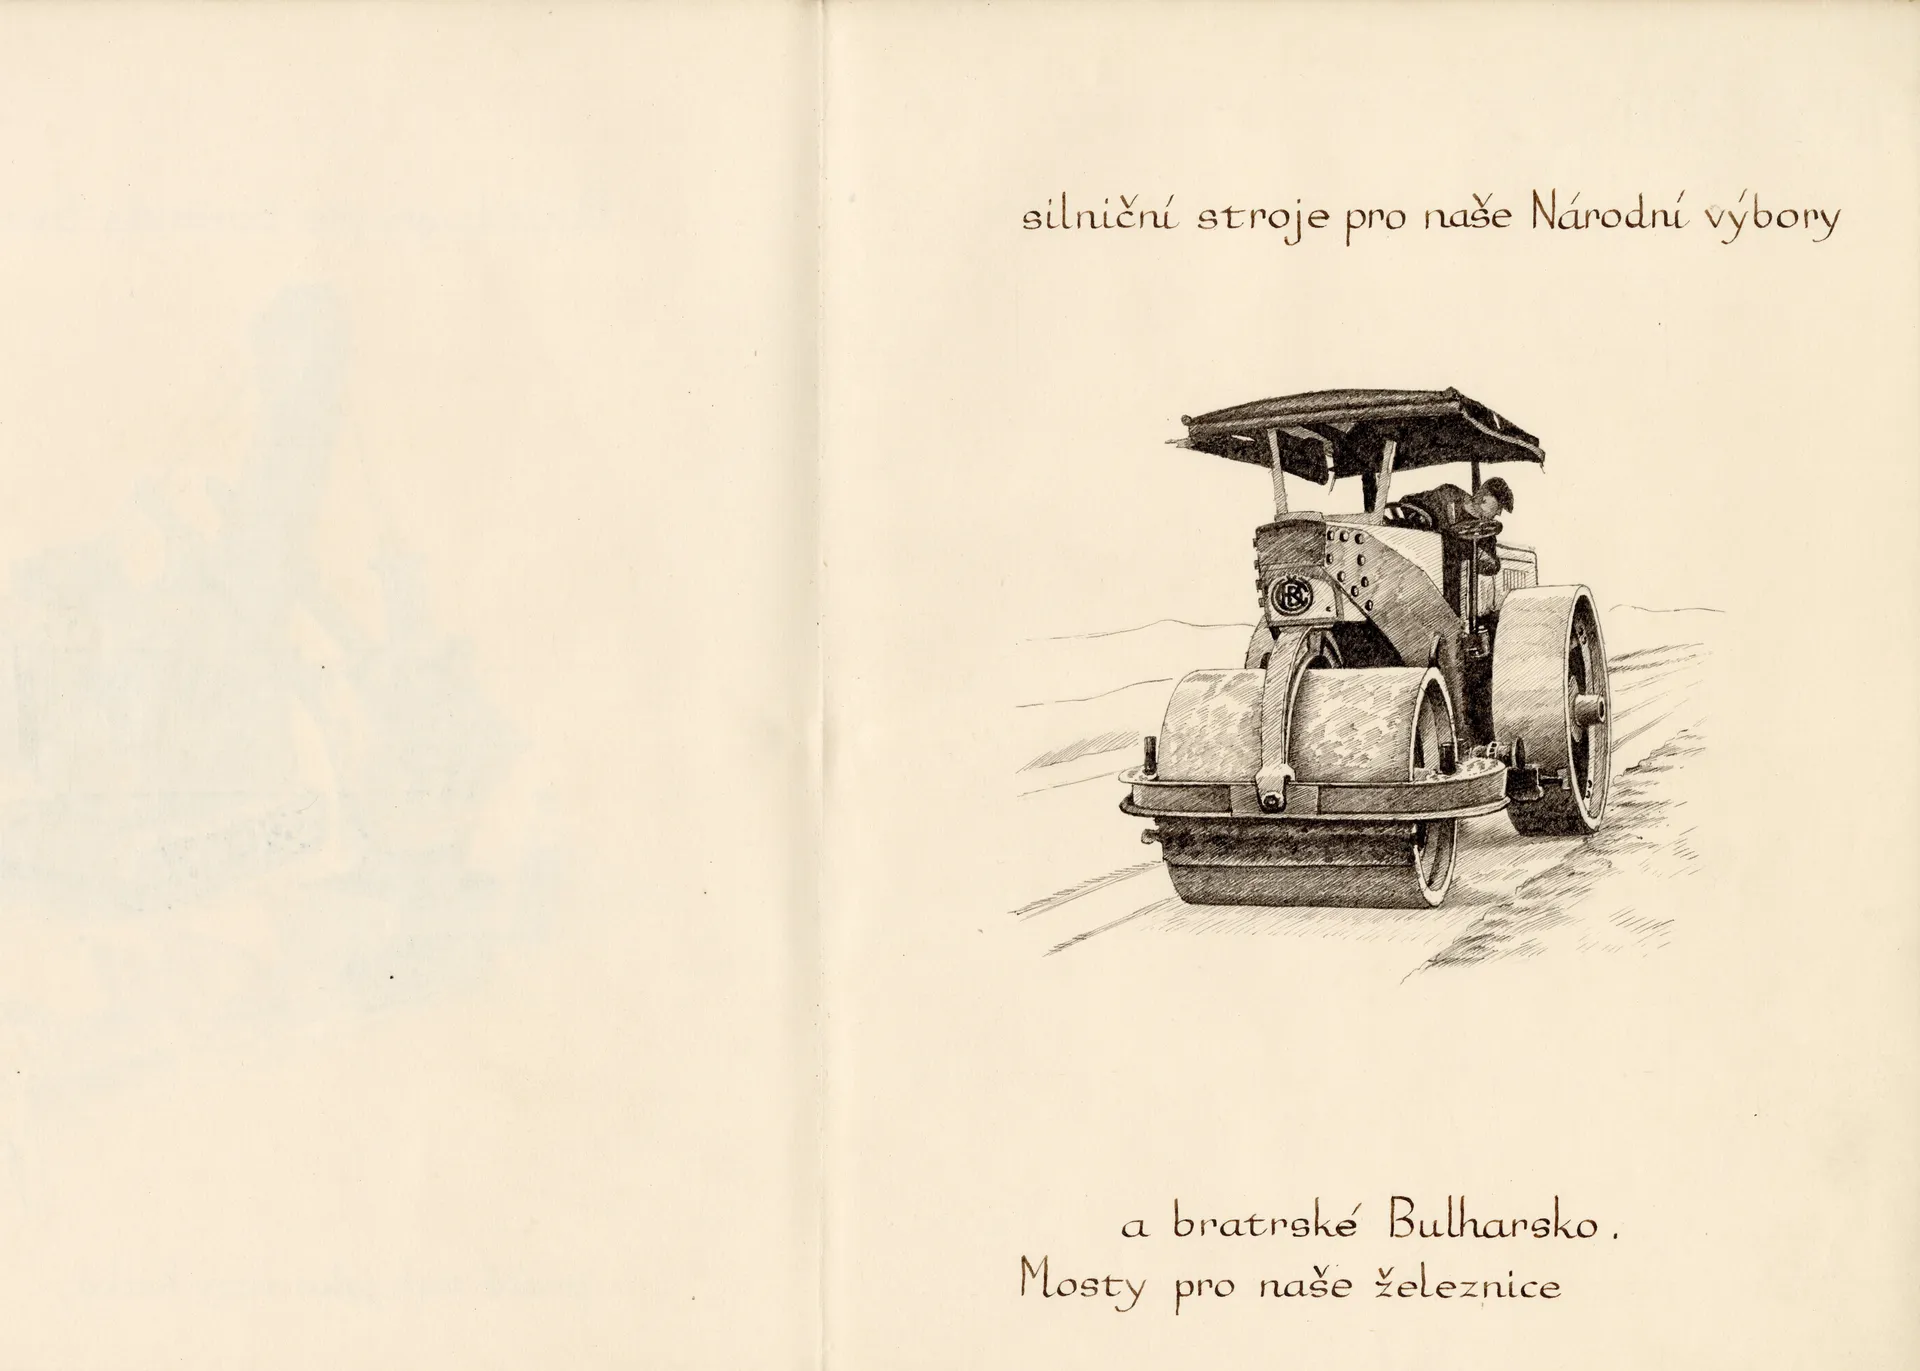 silniční stroje pro naše Národní výbory
a bratrské Bulharsko.
Mosty pro naše železnice